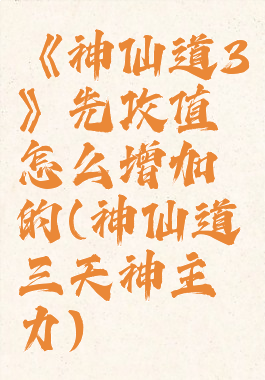 《神仙道3
》先攻值
怎么增加
的(神仙道
三天神主
力)